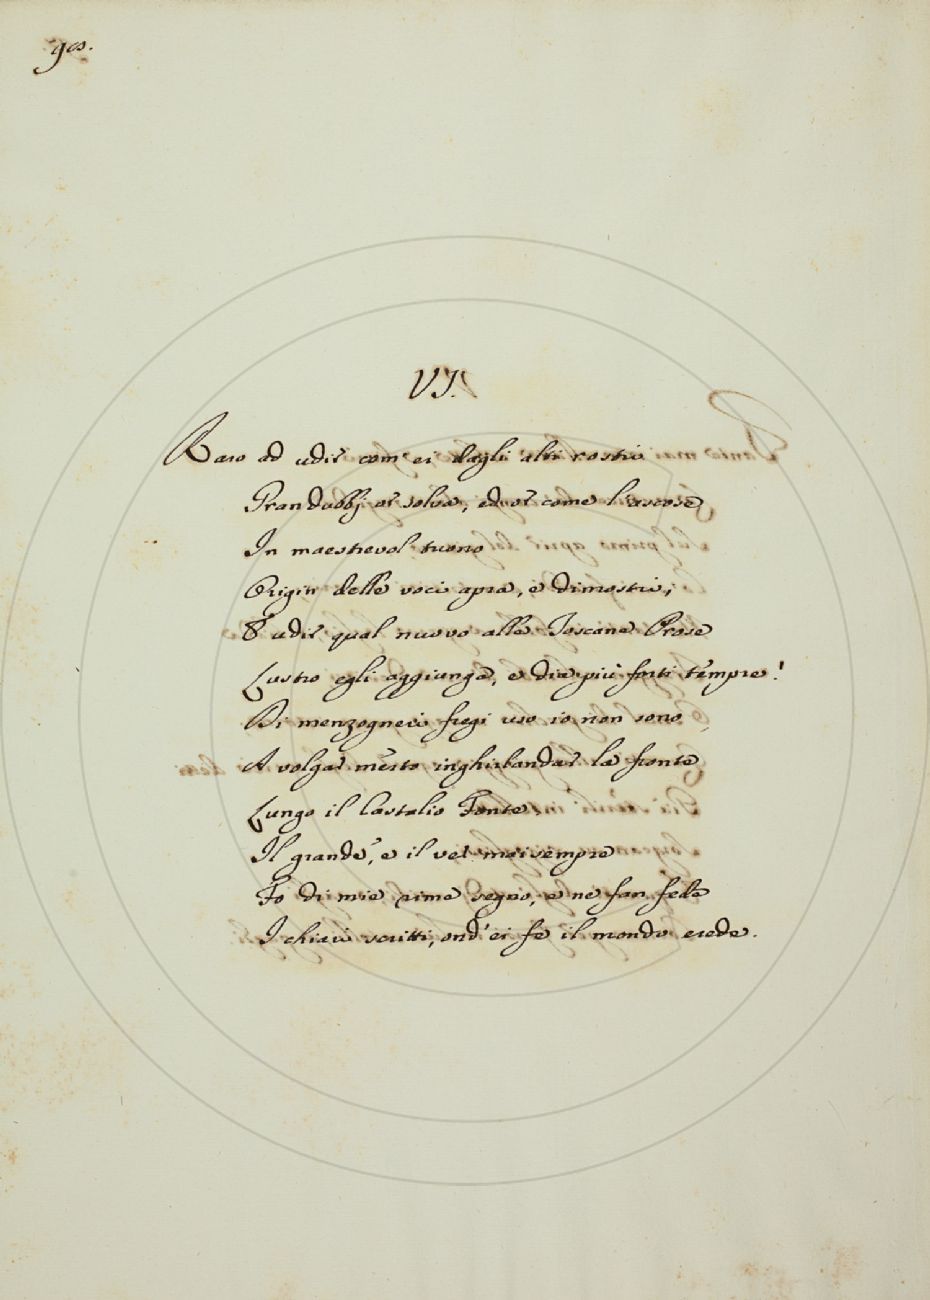 VI.
Raro ad udir com' ei dagli alti rostri
Gran dubbj or solva, ed or come l'ascose
In maestrevol tuono
Origin delle voci apra, e dimostri;
E udir qual nuovo alle Toscane Prose
Lustro egli aggiunga, e die più forti tempre!
Di menzogneri fregi uso io non sono
A volgar merto inghirlandar la fronte
Lungo il Castalio Fonte.
Il grande, e il ver mai sempre
Fo di mie rime segno, e ne fan fede
I chiari scritti, ond' ei fe il mondo erede.